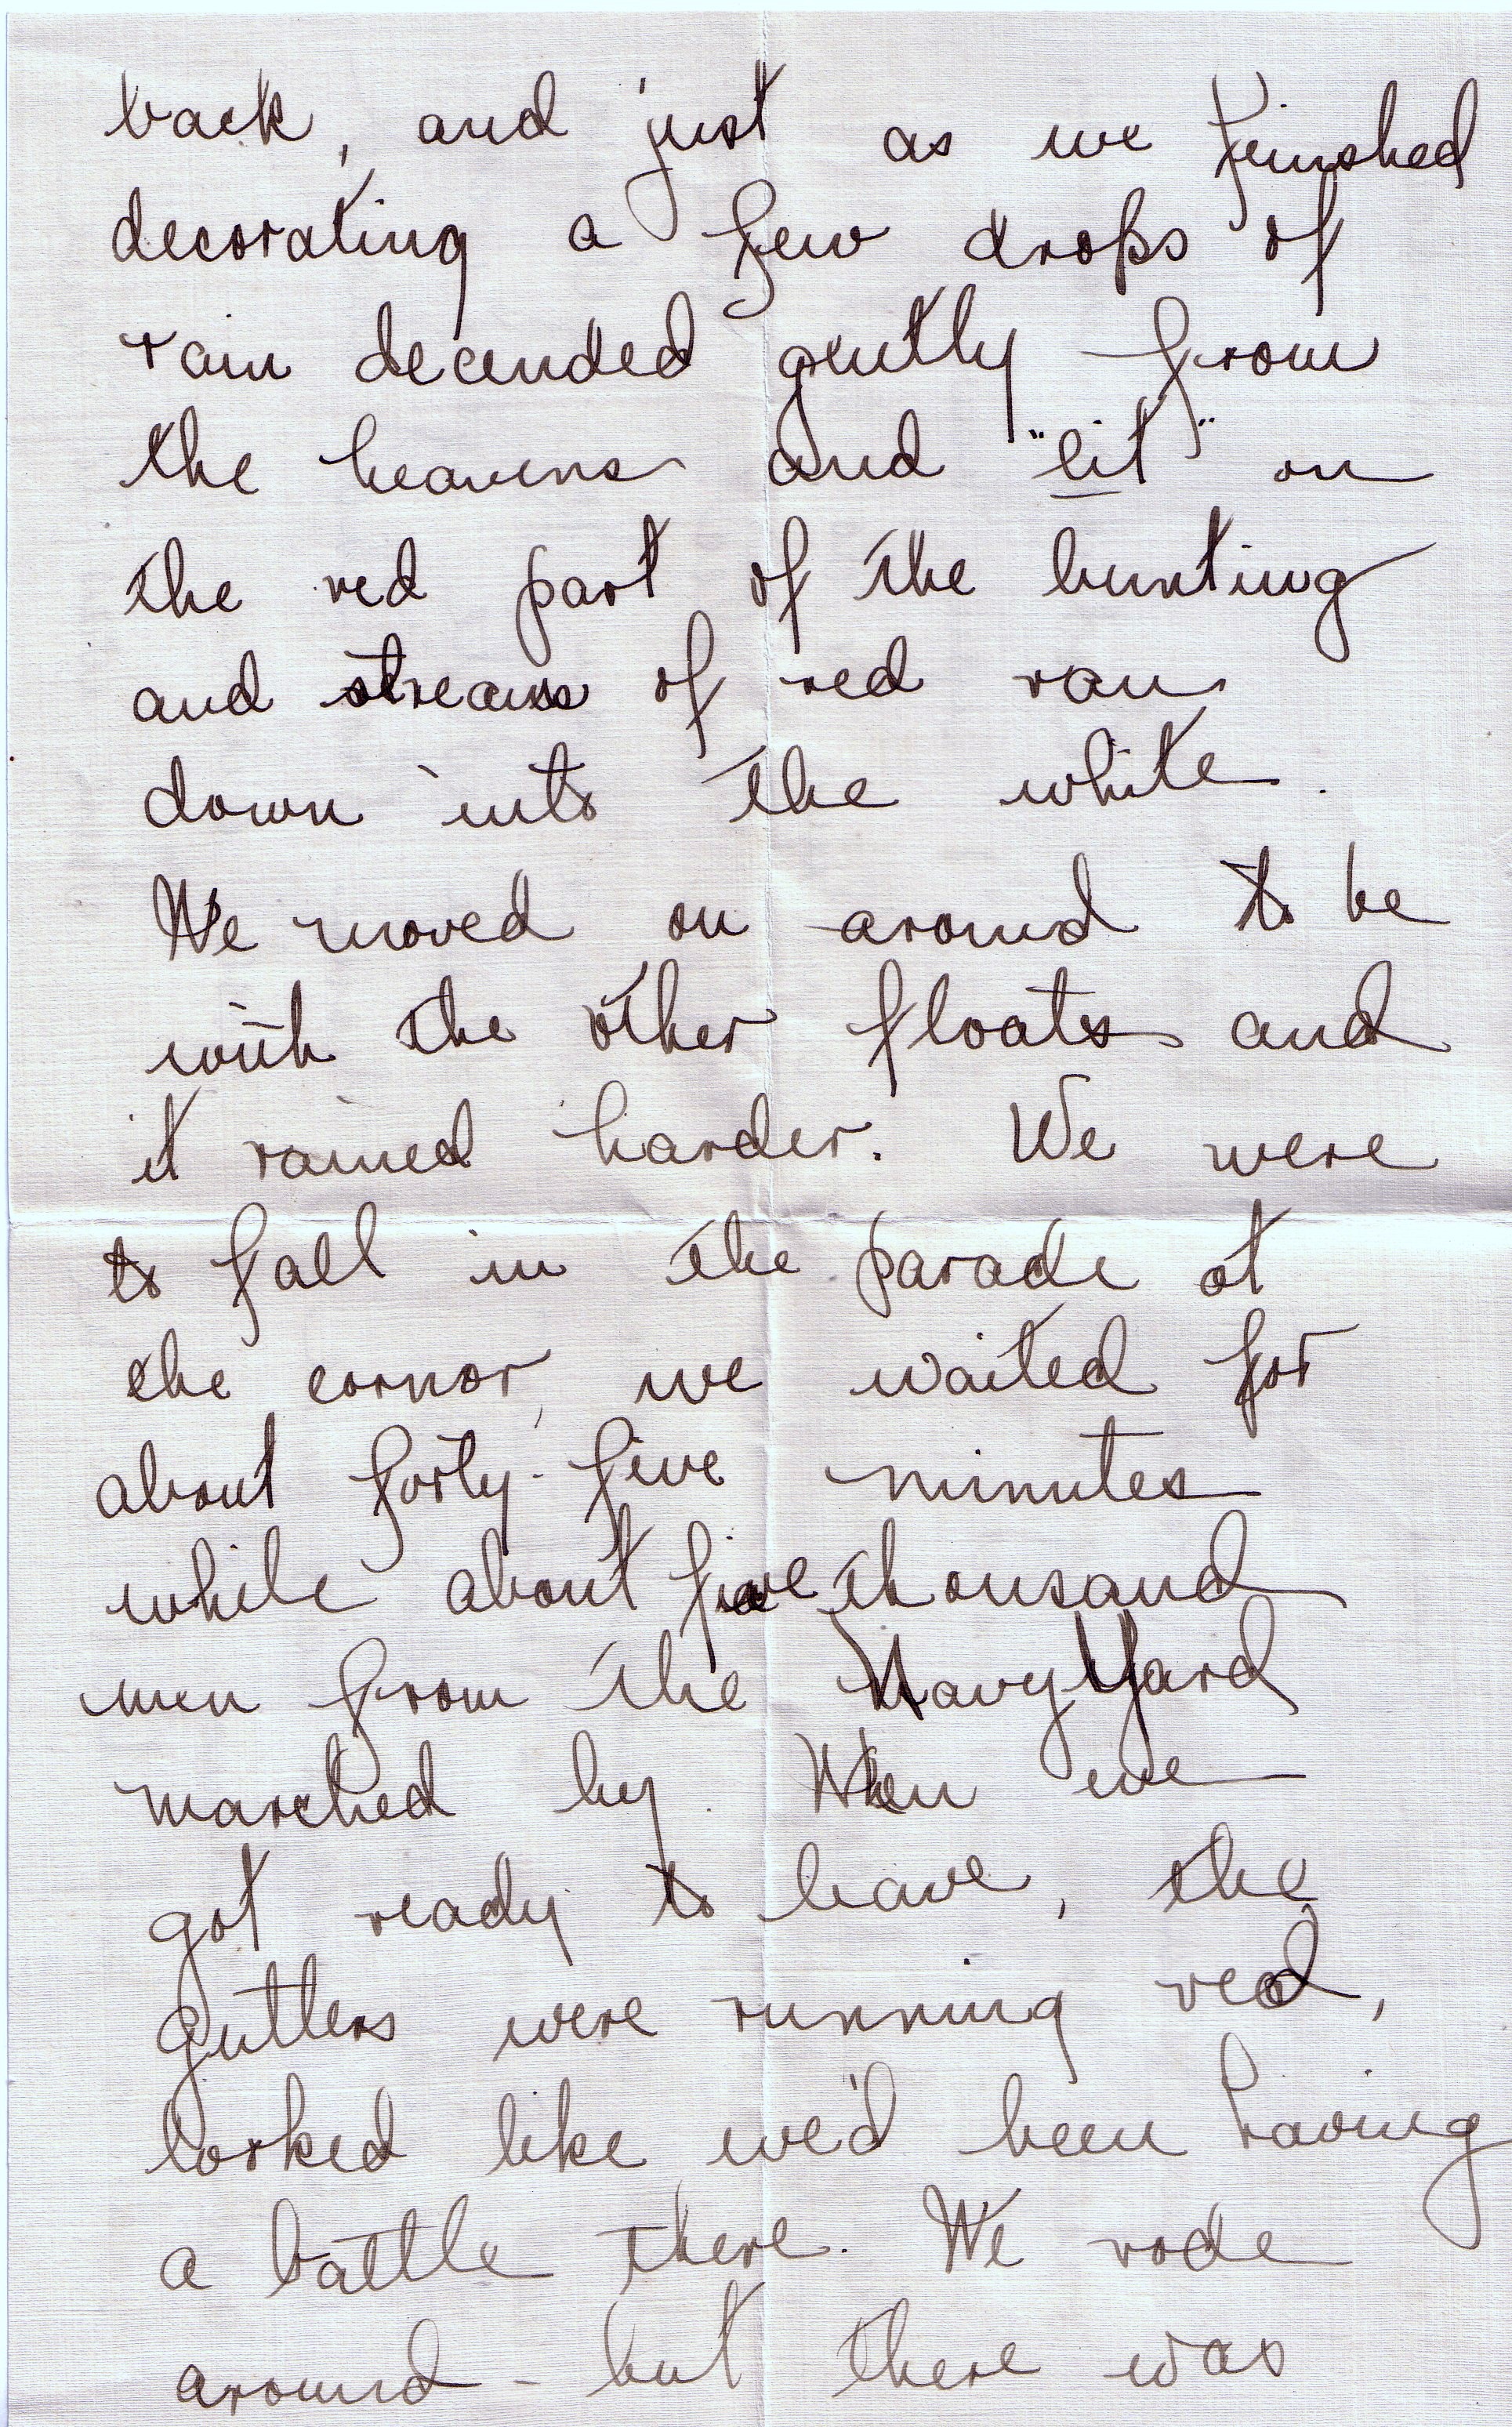 back, and just as we finished
decorating a few drops of
rain decended gently from
the heavens and "lit" on
the red part of the bunting
and streams of red ran
down into the white.
We moved on around to be
with the other floats and
it rained harder. We were
to fall in the parade at
the cornor, we waited for
about forty-five minutes
while about five thousand
men from the Navy Yard
marched by. When we
got ready to leave, the
gutters were running red,
looked like we'd been having
a battle there. We rode
around - but there was